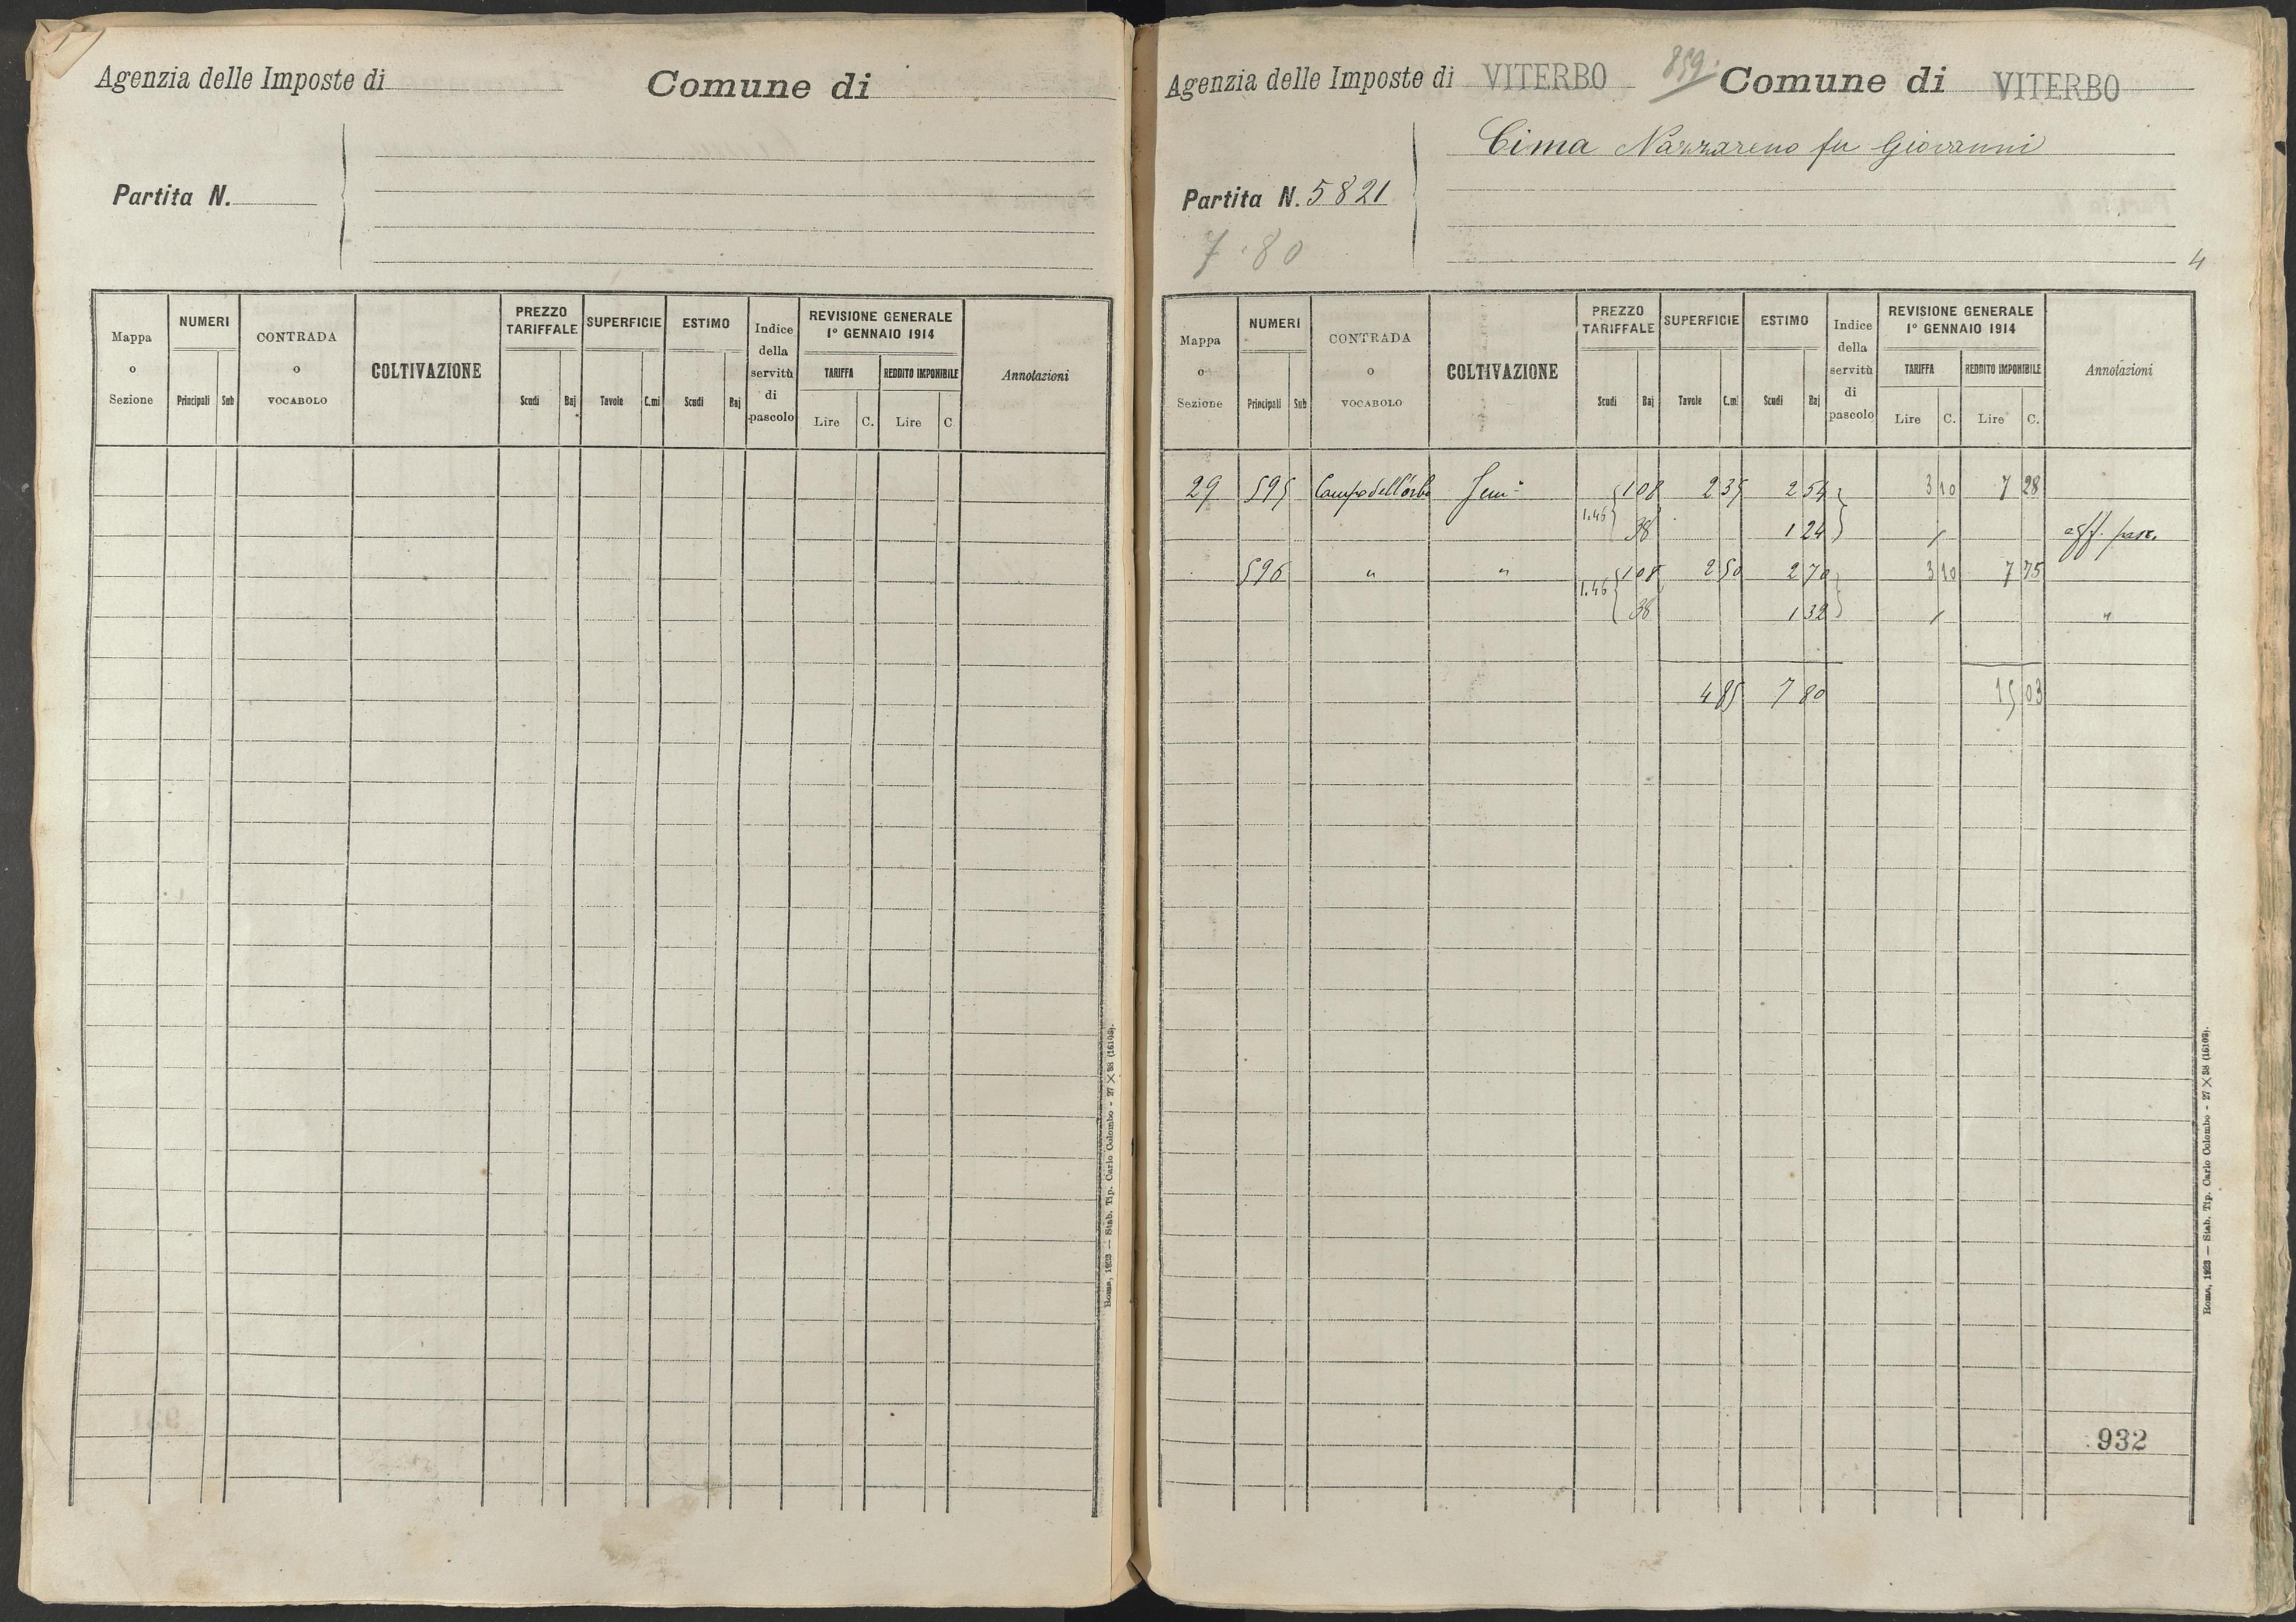 Agenzia delle Imposte di Comune di
Partita N.
Mappa o Sezione NUMERI Principali Sub CONTRADA o VOCABOLO COLTIVAZIONE PREZZO TARIFFALE Scudi Baj SUPERFICIE Tavole C.mi ESTIMO Scudi Baj Indice della servitù di pascolo REVISIONE GENERALE 1° GENNAIO 1914 TARIFFA Lire C. REDDITO IMPONIBILE Lire C Annotazioni
Roma, 1923 — Stab. Tip. Carlo Colombo - 27 X 38 (16102).
Agenzia delle Imposte di VITERBO 859. Comune di VITERBO
Cima Nazzareno fu Giovanni
Partita N. 5821
7.80
4
Mappa o Sezione NUMERI Principali Sub CONTRADA o VOCABOLO COLTIVAZIONE PREZZO TARIFFALE Scudi Baj SUPERFICIE Tavole C.mi ESTIMO Scudi Baj Indice della servitù di pascolo REVISIONE GENERALE 1° GENNAIO 1914 TARIFFA Lire C. REDDITO IMPONIBILE Lire C. Annotazioni
29 595 Sem° 1 08 2 35 2 54 3 10 7 28
1.46 38 1 24 / aff. pasc.
596 " " 1 08 2 50 2 70 3 10 7 75
1.46 38 1 32 / "
4 85 7 80 15 03
932
Roma, 1923 — Stab. Tip. Carlo Colombo - 27 X 38 (16102).